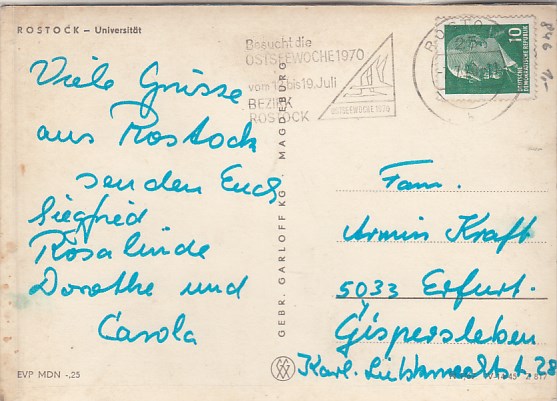 ROSTOCK – Universität
Besucht die
OSTSEEWOCHE 1970
vom 12. bis 19. Juli
BEZIRK
ROSTOCK
OSTSEEWOCHE 1970
ROSTO
10
DEUTSCHE
DEMOKRATISCHE REPUBLIK
846
Viele Grüsse
aus Rostock
senden Euch
Siegfried
Rosalinde
Dorothe und
Carola
GEBR. GARLOFF KG · MAGDEBURG
Fam.
Armin Kraft
5033 Erfurt.
Gispersleben
Karl. Liebknechtstr. 28
EVP MDN -,25